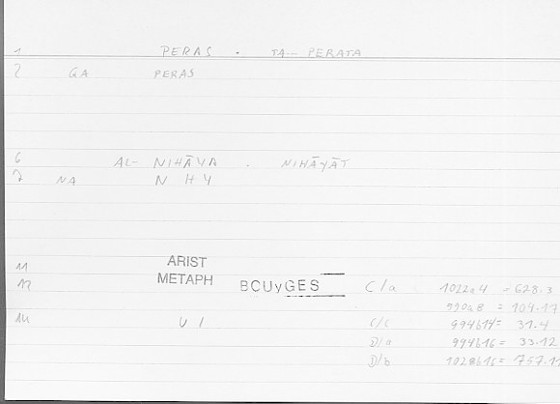 1 PERAS . TA- PERATA
2 GA PERAS
6 AL- NIHĀYA . NIHĀYĀT
7 NA N H Y
11 ARIST
12 METAPH BCUyGES C/a 1022a4 = 628.3
990a8 = 104.17
14 U I C/c 994b14 = 31.4
D/a 994b16 = 33.12
D/b 1028b16 =